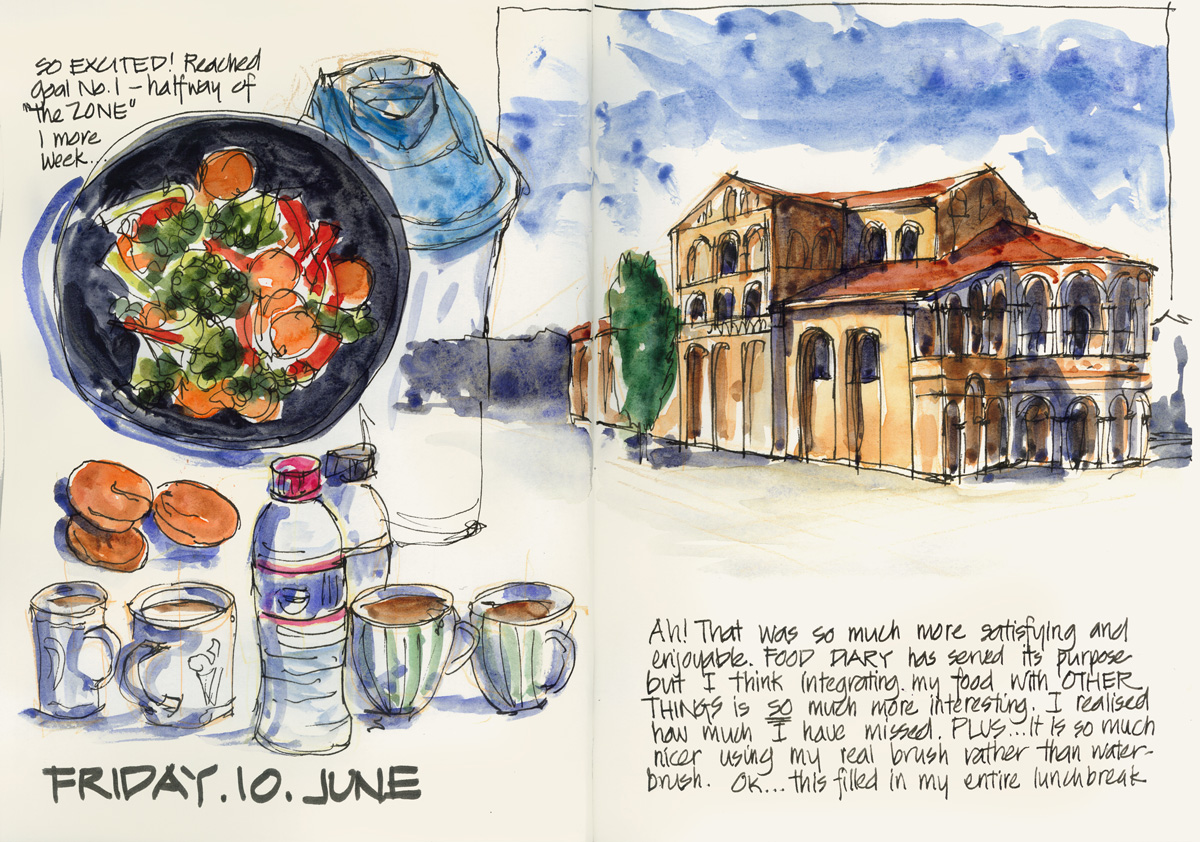 SO EXCITED! Reached
goal No.1 – halfway of
"the ZONE"
1 more
week...
FRIDAY.10.JUNE
Ah! That was so much more satisfying and
enjoyable. FOOD DIARY has served its purpose
but I think integrating my food with OTHER
THINGS is so much more interesting. I realised
how much I have missed. PLUS...it is so much
nicer using my real brush rather than water-
brush. OK...this filled in my entire lunchbreak